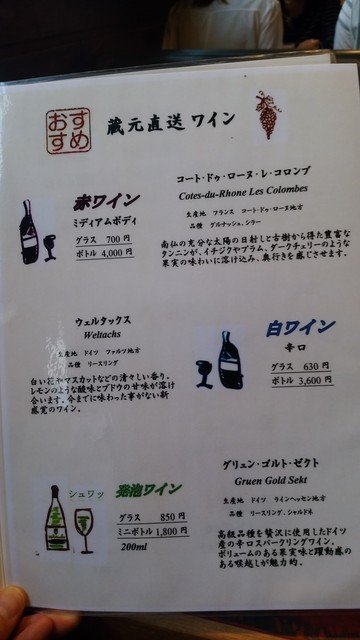 おすすめ
蔵元直送 ワイン
赤ワイン
ミディアムボディ
グラス 700 円
ボトル 4,000 円
コート・ドゥ・ローヌ・レ・コロンブ
Cotes-du-Rhone Les Colombes
生産地 フランス コート・ドゥ・ローヌ地方
品種 グルナッシュ、シラー
南仏の充分な太陽の日射しと古樹から得た豊富な
タンニンが、イチジクやプラム、ダークチェリーのような
果実の味わいに溶け込み、奥行きを感じさせます。
ウェルタックス
Weltachs
生産地 ドイツ ファルツ地方
品種 リースリング
白い花やマスカットなどの清々しい香り。
レモンのような酸味とブドウの甘味が溶け
合います。今までに味わった事がない新
感覚のワイン。
白ワイン
辛口
グラス 630 円
ボトル 3,600 円
シュワッ 発泡ワイン
グラス 850 円
ミニボトル 1,800 円
200ml
グリュン・ゴルト・ゼクト
Gruen Gold Sekt
生産地 ドイツ ラインヘッセン地方
品種 リースリング、シャルドネ
高級品種を贅沢に使用したドイツ
産の辛口スパークリングワイン。
ボリュームのある果実味と躍動感の
ある喉越しが魅力的。